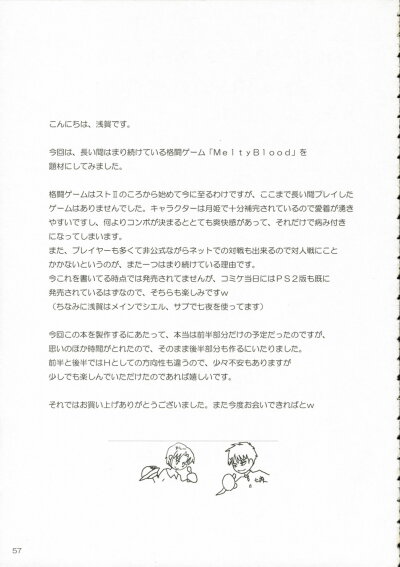 こんにちは、浅賀です。
今回は、長い間はまり続けている格闘ゲーム「MeltyBlood」を
題材にしてみました。
格闘ゲームはストⅡのころから始めて今に至るわけですが、ここまで長い間プレイした
ゲームはありませんでした。キャラクターは月姫で十分補完されているので愛着が湧き
やすいですし、何よりコンボが決まるととても爽快感があって、それだけで病み付き
になってしまいます。
また、プレイヤーも多くて非公式ながらネットでの対戦も出来るので対人戦にこと
かかないというのが、また一つはまり続けている理由です。
今これを書いてる時点では発売されてませんが、コミケ当日にはPS2版も既に
発売されているはずなので、そちらも楽しみですw
(ちなみに浅賀はメインでシエル、サブで七夜を使ってます)
今回この本を製作するにあたって、本当は前半部分だけの予定だったのですが、
思いのほか時間がとれたので、そのまま後半部分も作るにいたりました。
前半と後半ではHとしての方向性も違うので、少々不安もありますが
少しでも楽しんでいただけたのであれば嬉しいです。
それではお買い上げありがとうございました。また今度お会いできればとw
57